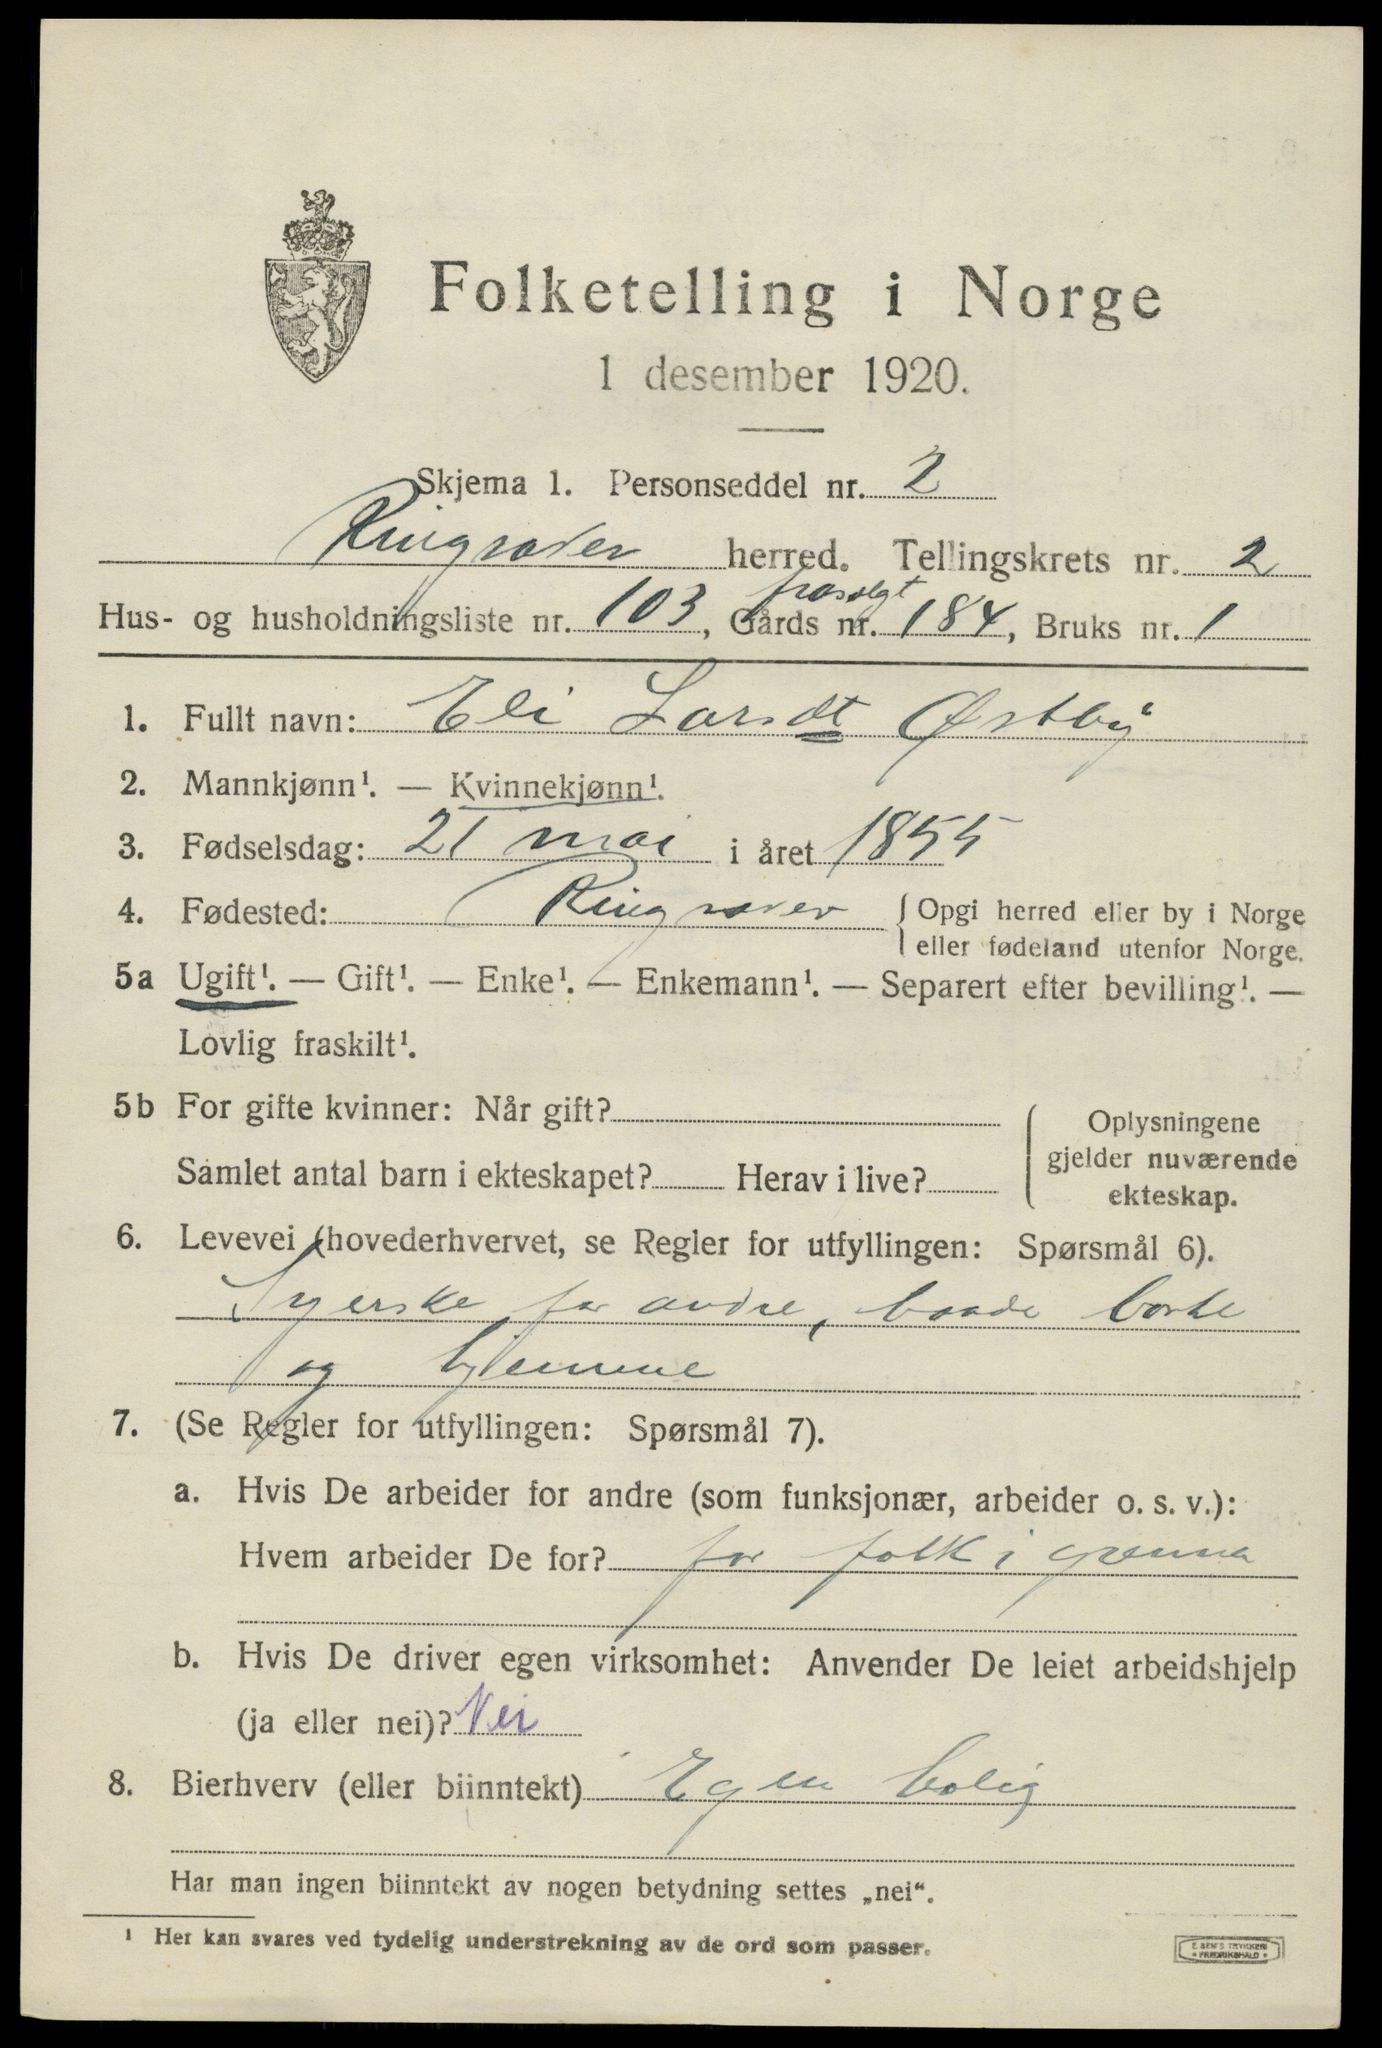 Folketelling i Norge
1 desember 1920.
Skjema 1. Personseddel nr. 2
Ringsaker herred. Tellingskrets nr. 2
frasolgt
Hus- og husholdningsliste nr. 103, Gårds nr. 184, Bruks nr. 1
1. Fullt navn: Eli Larsdt Østby
2. Mannkjønn¹. — Kvinnekjønn¹.
3. Fødselsdag: 21 mai i året 1855
4. Fødested: Ringsaker { Opgi herred eller by i Norge
eller fødeland utenfor Norge.
5a Ugift¹. — Gift¹. — Enke¹. — Enkemann¹. — Separert efter bevilling¹. —
Lovlig fraskilt¹.
5b For gifte kvinner: Når gift?
Samlet antal barn i ekteskapet? Herav i live?
Oplysningene
gjelder nuværende
ekteskap.
6. Levevei (hovederhvervet, se Regler for utfyllingen: Spørsmål 6).
Syerske for andre, baade borte
og hjemme
7. (Se Regler for utfyllingen: Spørsmål 7).
a. Hvis De arbeider for andre (som funksjonær, arbeider o. s. v.):
Hvem arbeider De for? for folk i grenna
b. Hvis De driver egen virksomhet: Anvender De leiet arbeidshjelp
(ja eller nei)? Nei
8. Bierhverv (eller biinntekt) Egen bolig
Har man ingen biinntekt av nogen betydning settes „nei“.
¹ Her kan svares ved tydelig understrekning av de ord som passer.
E. SEM'S TRYKKERI
FREDRIKSHALD